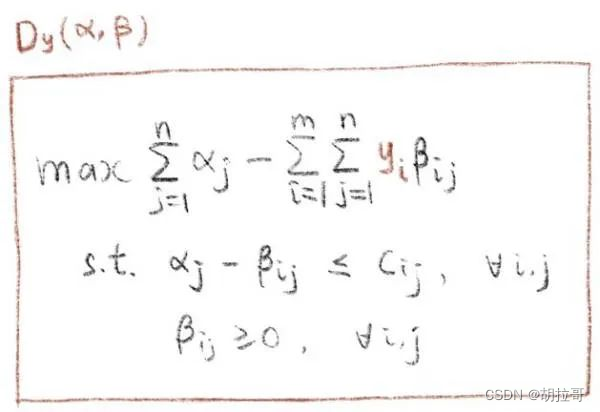 Dy(α, β)
max ∑_{j=1}^{n} αj − ∑_{i=1}^{m} ∑_{j=1}^{n} yi βij
s.t. αj − βij ≤ Cij, ∀i,j
βij ≥ 0, ∀i,j
CSDN @胡拉哥